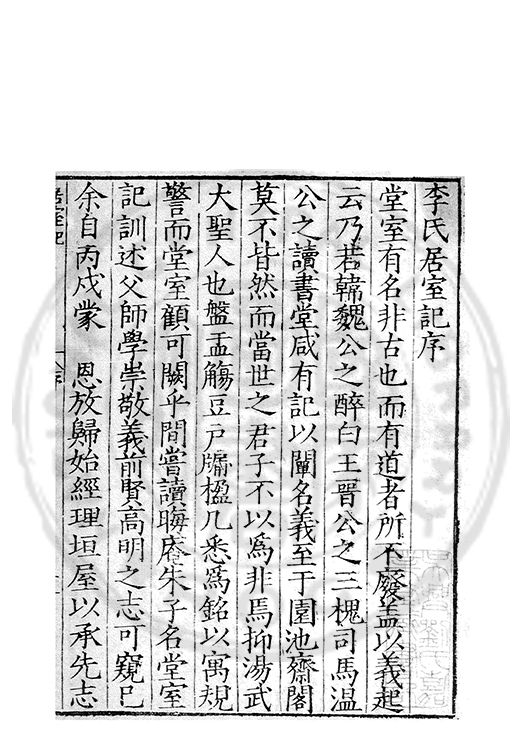 李氏居室記序
堂室有名非古也而有道者所不廢盖以義起
云乃若韓魏公之醉白王晋公之三槐司馬温
公之讀書堂咸有記以闡名義至于園池齋閣
莫不皆然而當世之君子不以爲非焉抑湯武
大聖人也盤盂觴豆戶牖楹几悉爲銘以寓規
警而堂室顧可闕乎間嘗讀晦庵朱子名堂室
記訓述父師學崇敬義前賢高明之志可窺已
余自丙戍蒙 恩放歸始經理垣屋以承先志
居室記